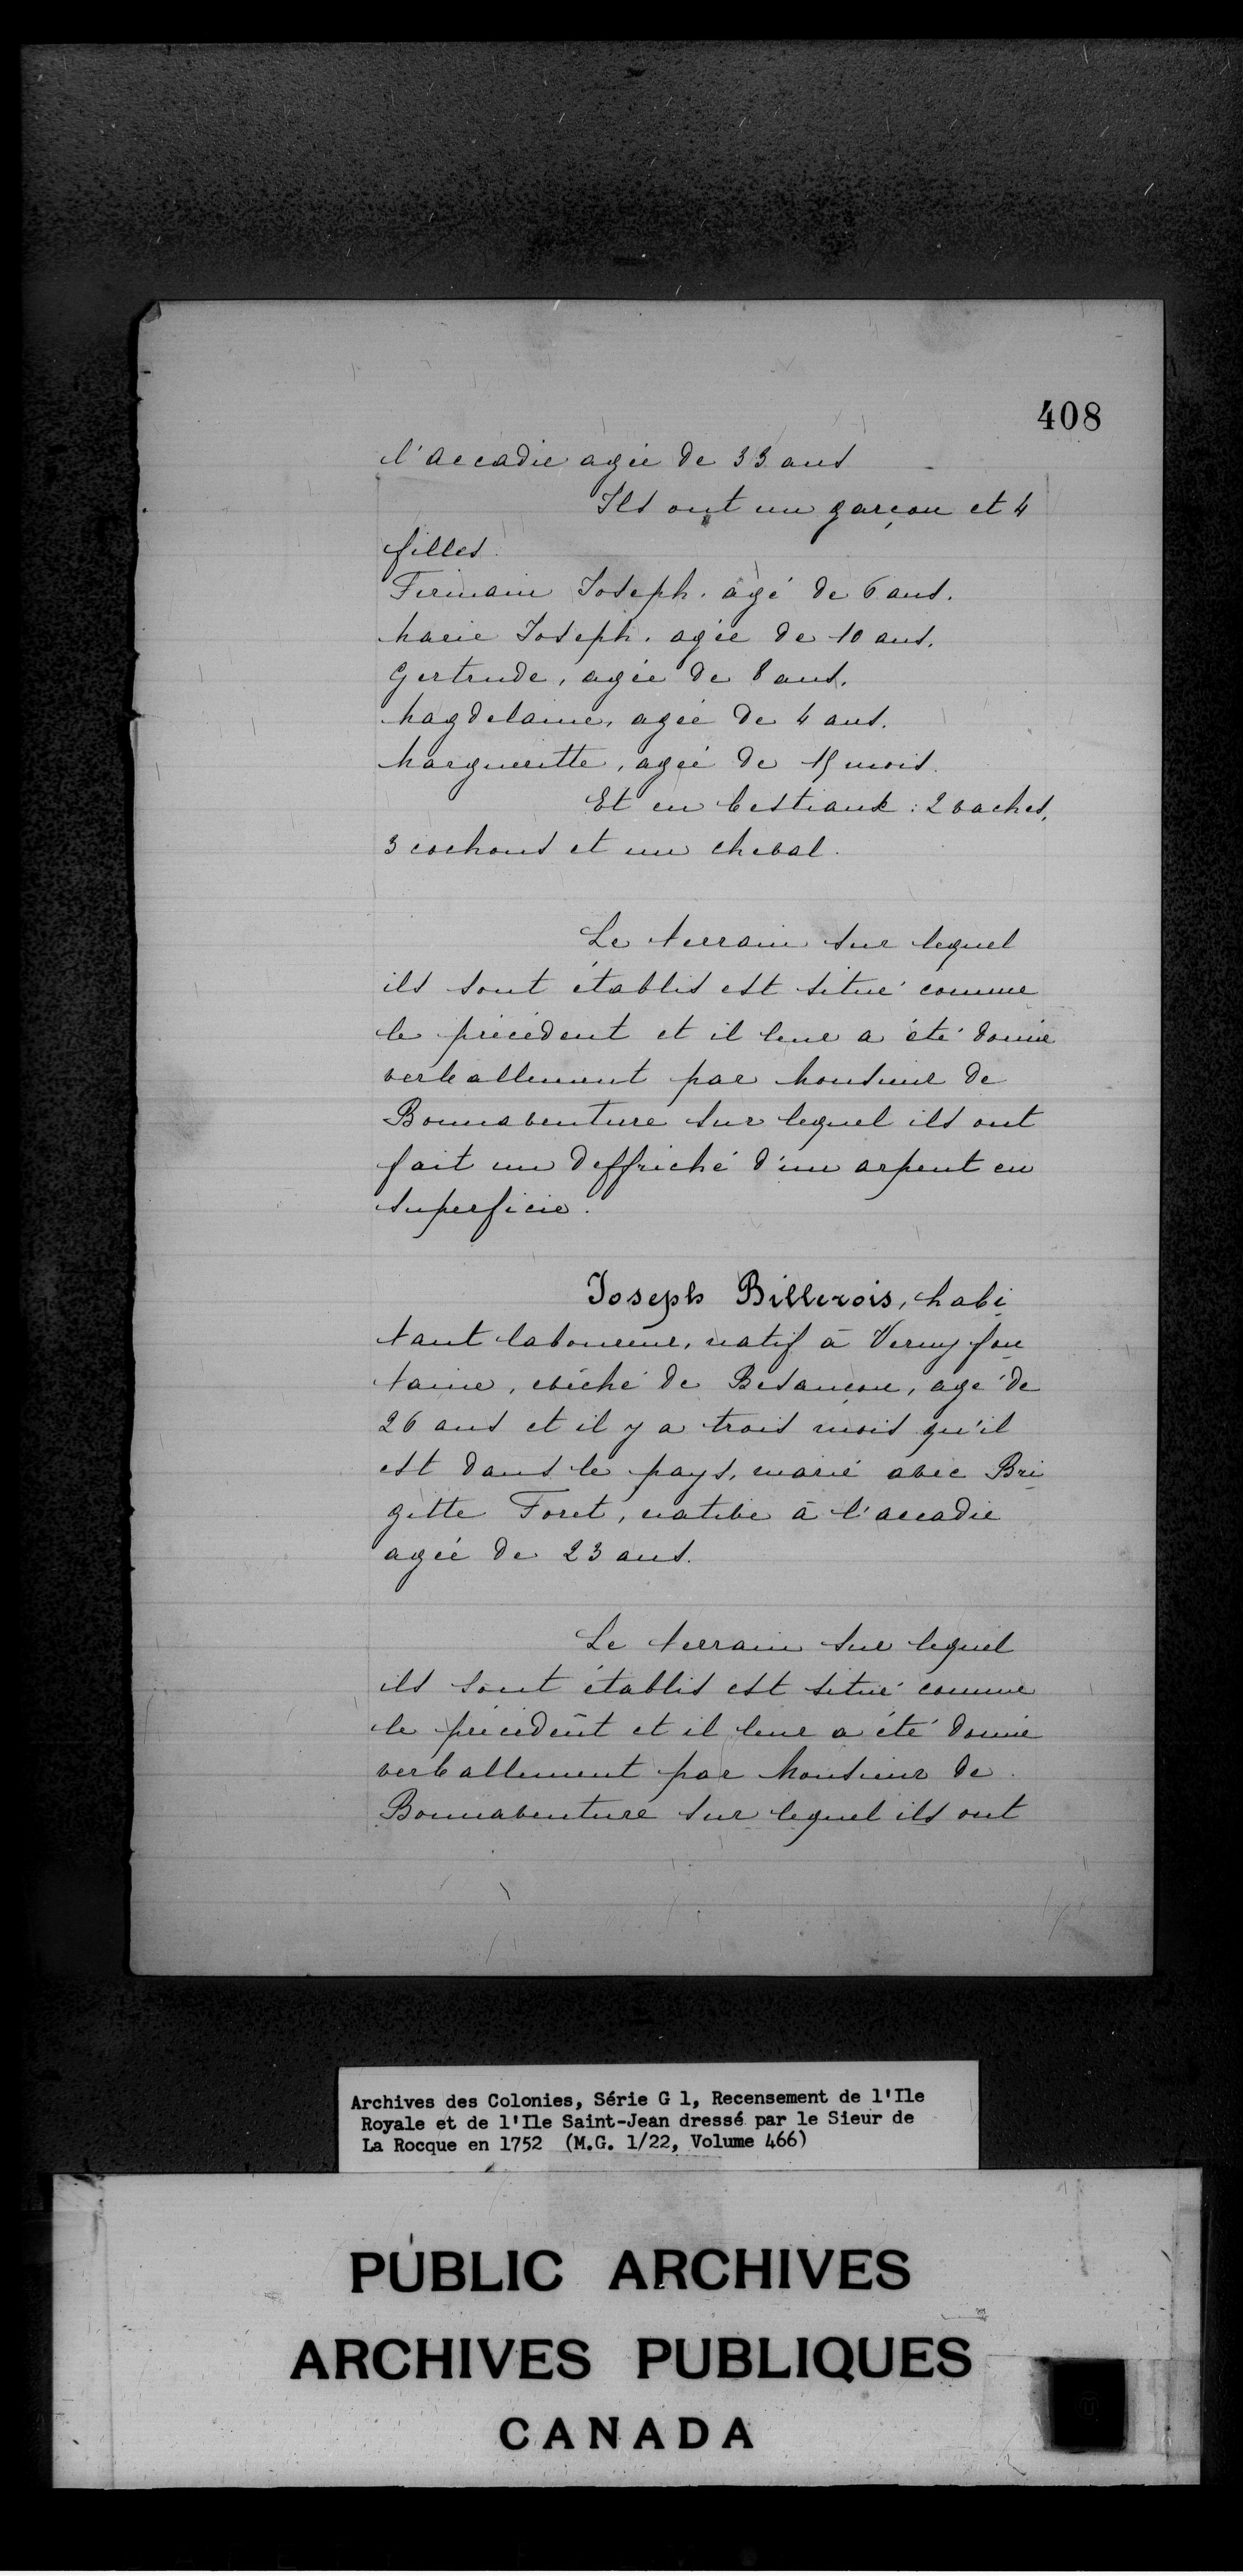 408
l'accadie agée de 33 ans
Ils ont un garçon et 4
filles.
Firmain Joseph. agé de 6 ans.
Marie Joseph. agée de 10 ans.
Gertrude, agée de 8 ans.
Magdelaine, agée de 4 ans.
Margueritte, agée de 15 mois.
Et en bestiaux : 2 vaches,
3 cochons et un cheval.
Le terrain sur lequel
ils sont établis est situé comme
le précédent et il leur a été donné
verballement par Monsieur de
Bonnaventure sur lequel ils ont
fait un deffriché d'un arpent en
superficie.
Joseph Billerois, habi
tant laboureur, natif à Verny fon
taine, evêché de Besancon, agé de
26 ans et il y a trois mois qu'il
est dans le pays, marié avec Bri
gitte Foret, native à l'accadie
agée de 23 ans.
Le terrain sur lequel
ils sont établis est situé comme
le précédent et il leur a été donné
verballement par Monsieur de
Bonnaventure sur lequel ils ont
Archives des Colonies, Série G 1, Recensement de l'Ile
Royale et de l'Ile Saint-Jean dressé par le Sieur de
La Rocque en 1752 (M.G. 1/22, Volume 466)
PUBLIC ARCHIVES
ARCHIVES PUBLIQUES
CANADA